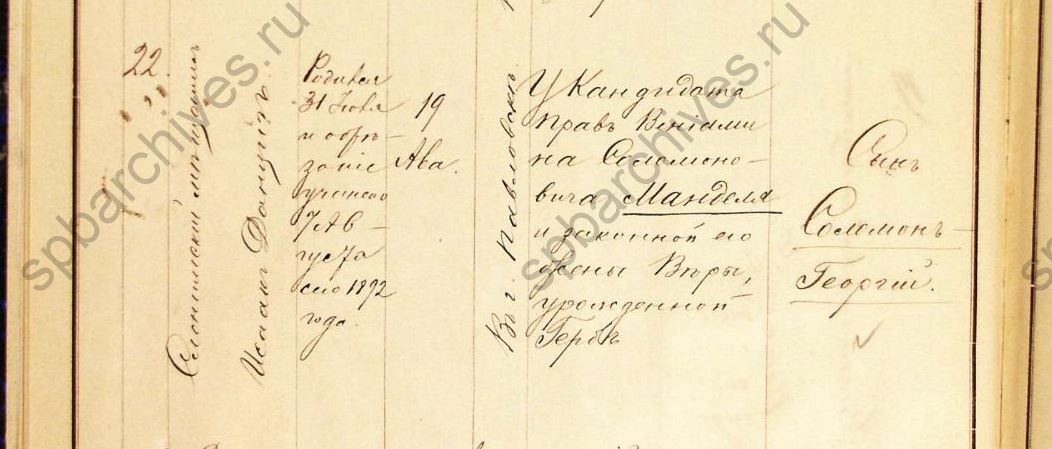 22.
Слонимскій мѣщанинъ
Исаакъ Данцигъ.
Родился
31 Іюля
и обрѣ-
заніе
учинено
7 Ав-
густа
сего 1892
года.
19
Ава.
Въ г. Павловскѣ.
У Кандидата
правъ Веніами
на Соломоно-
вича Манделя
и законной его
жены Вѣры,
урожденной
Гербъ
Сынъ
Соломонъ-
Георгій.
spbarchives.ru
spbarchives.ru
spbarchives.ru
spbarchives.ru